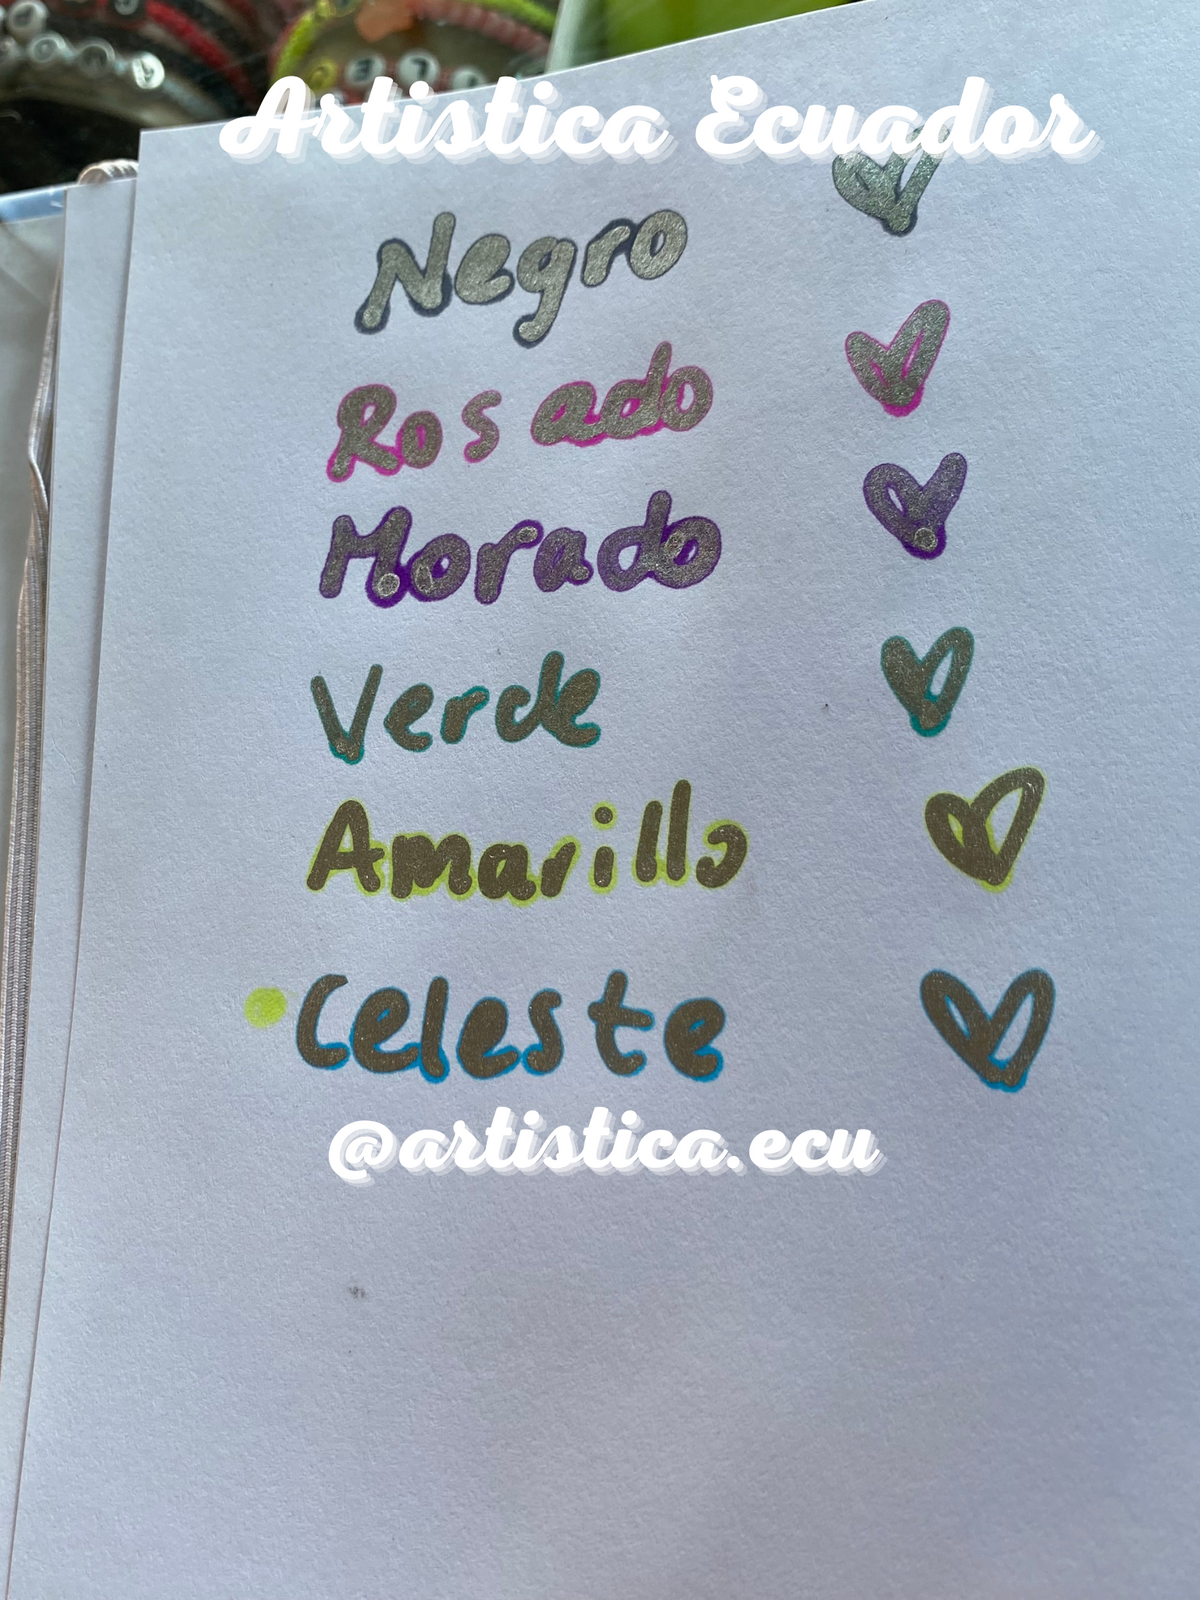 Artistica Ecuador
Negro
Rosado
Morado
Verde
Amarillo
Celeste
@artistica.ecu